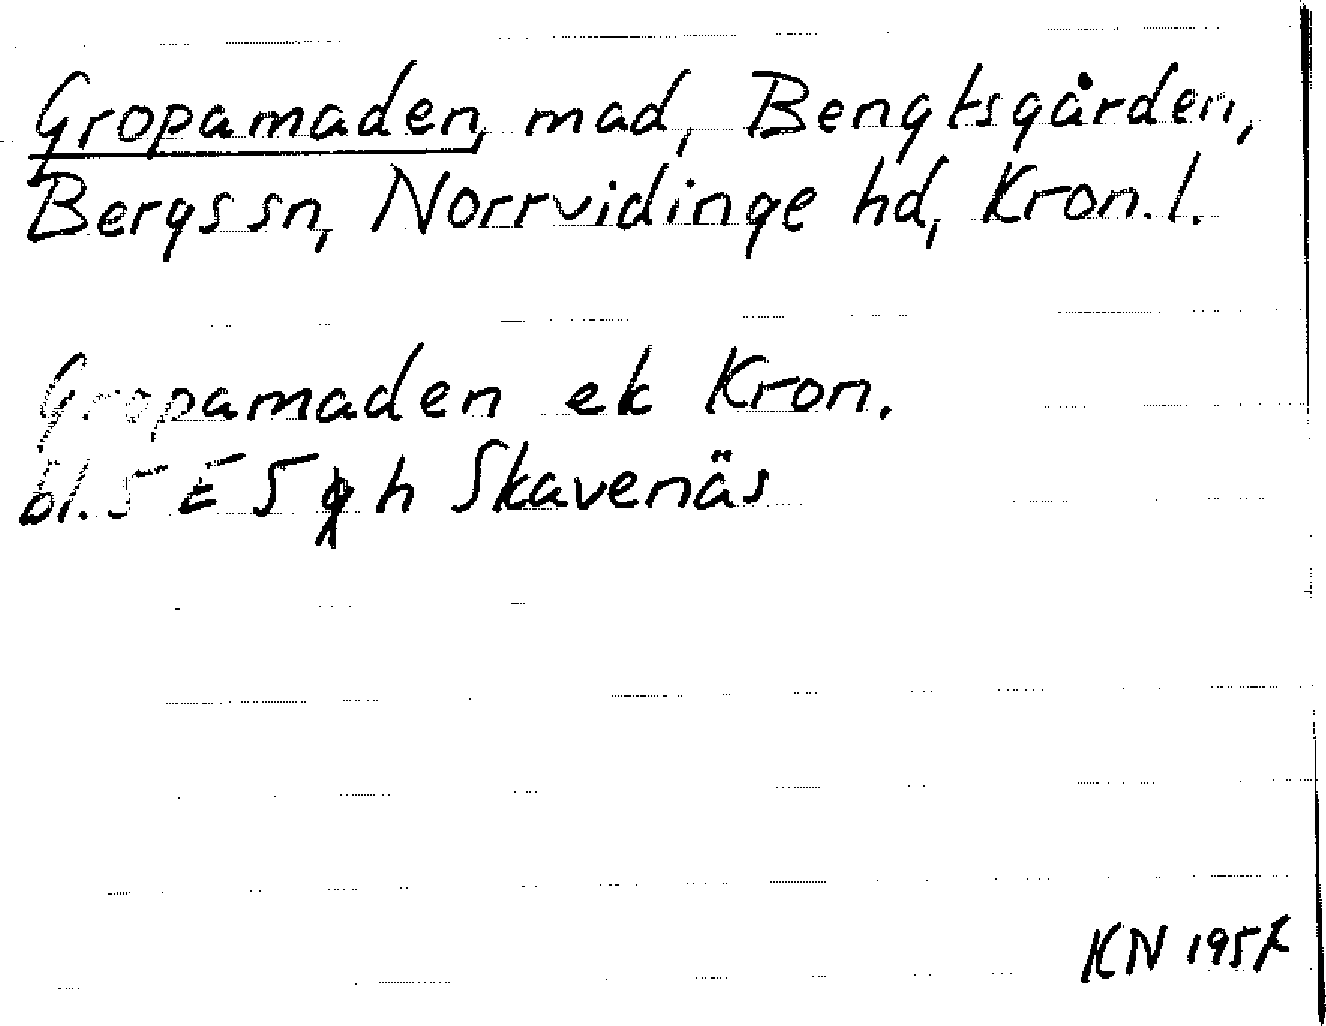 Gropamaden, mad, Bengtsgården,
Bergs sn, Norrvidinge hd, Kron. l.
Gropamaden ek Kron.
bl. 5 E 5 g h Skavenäs
KN 1957